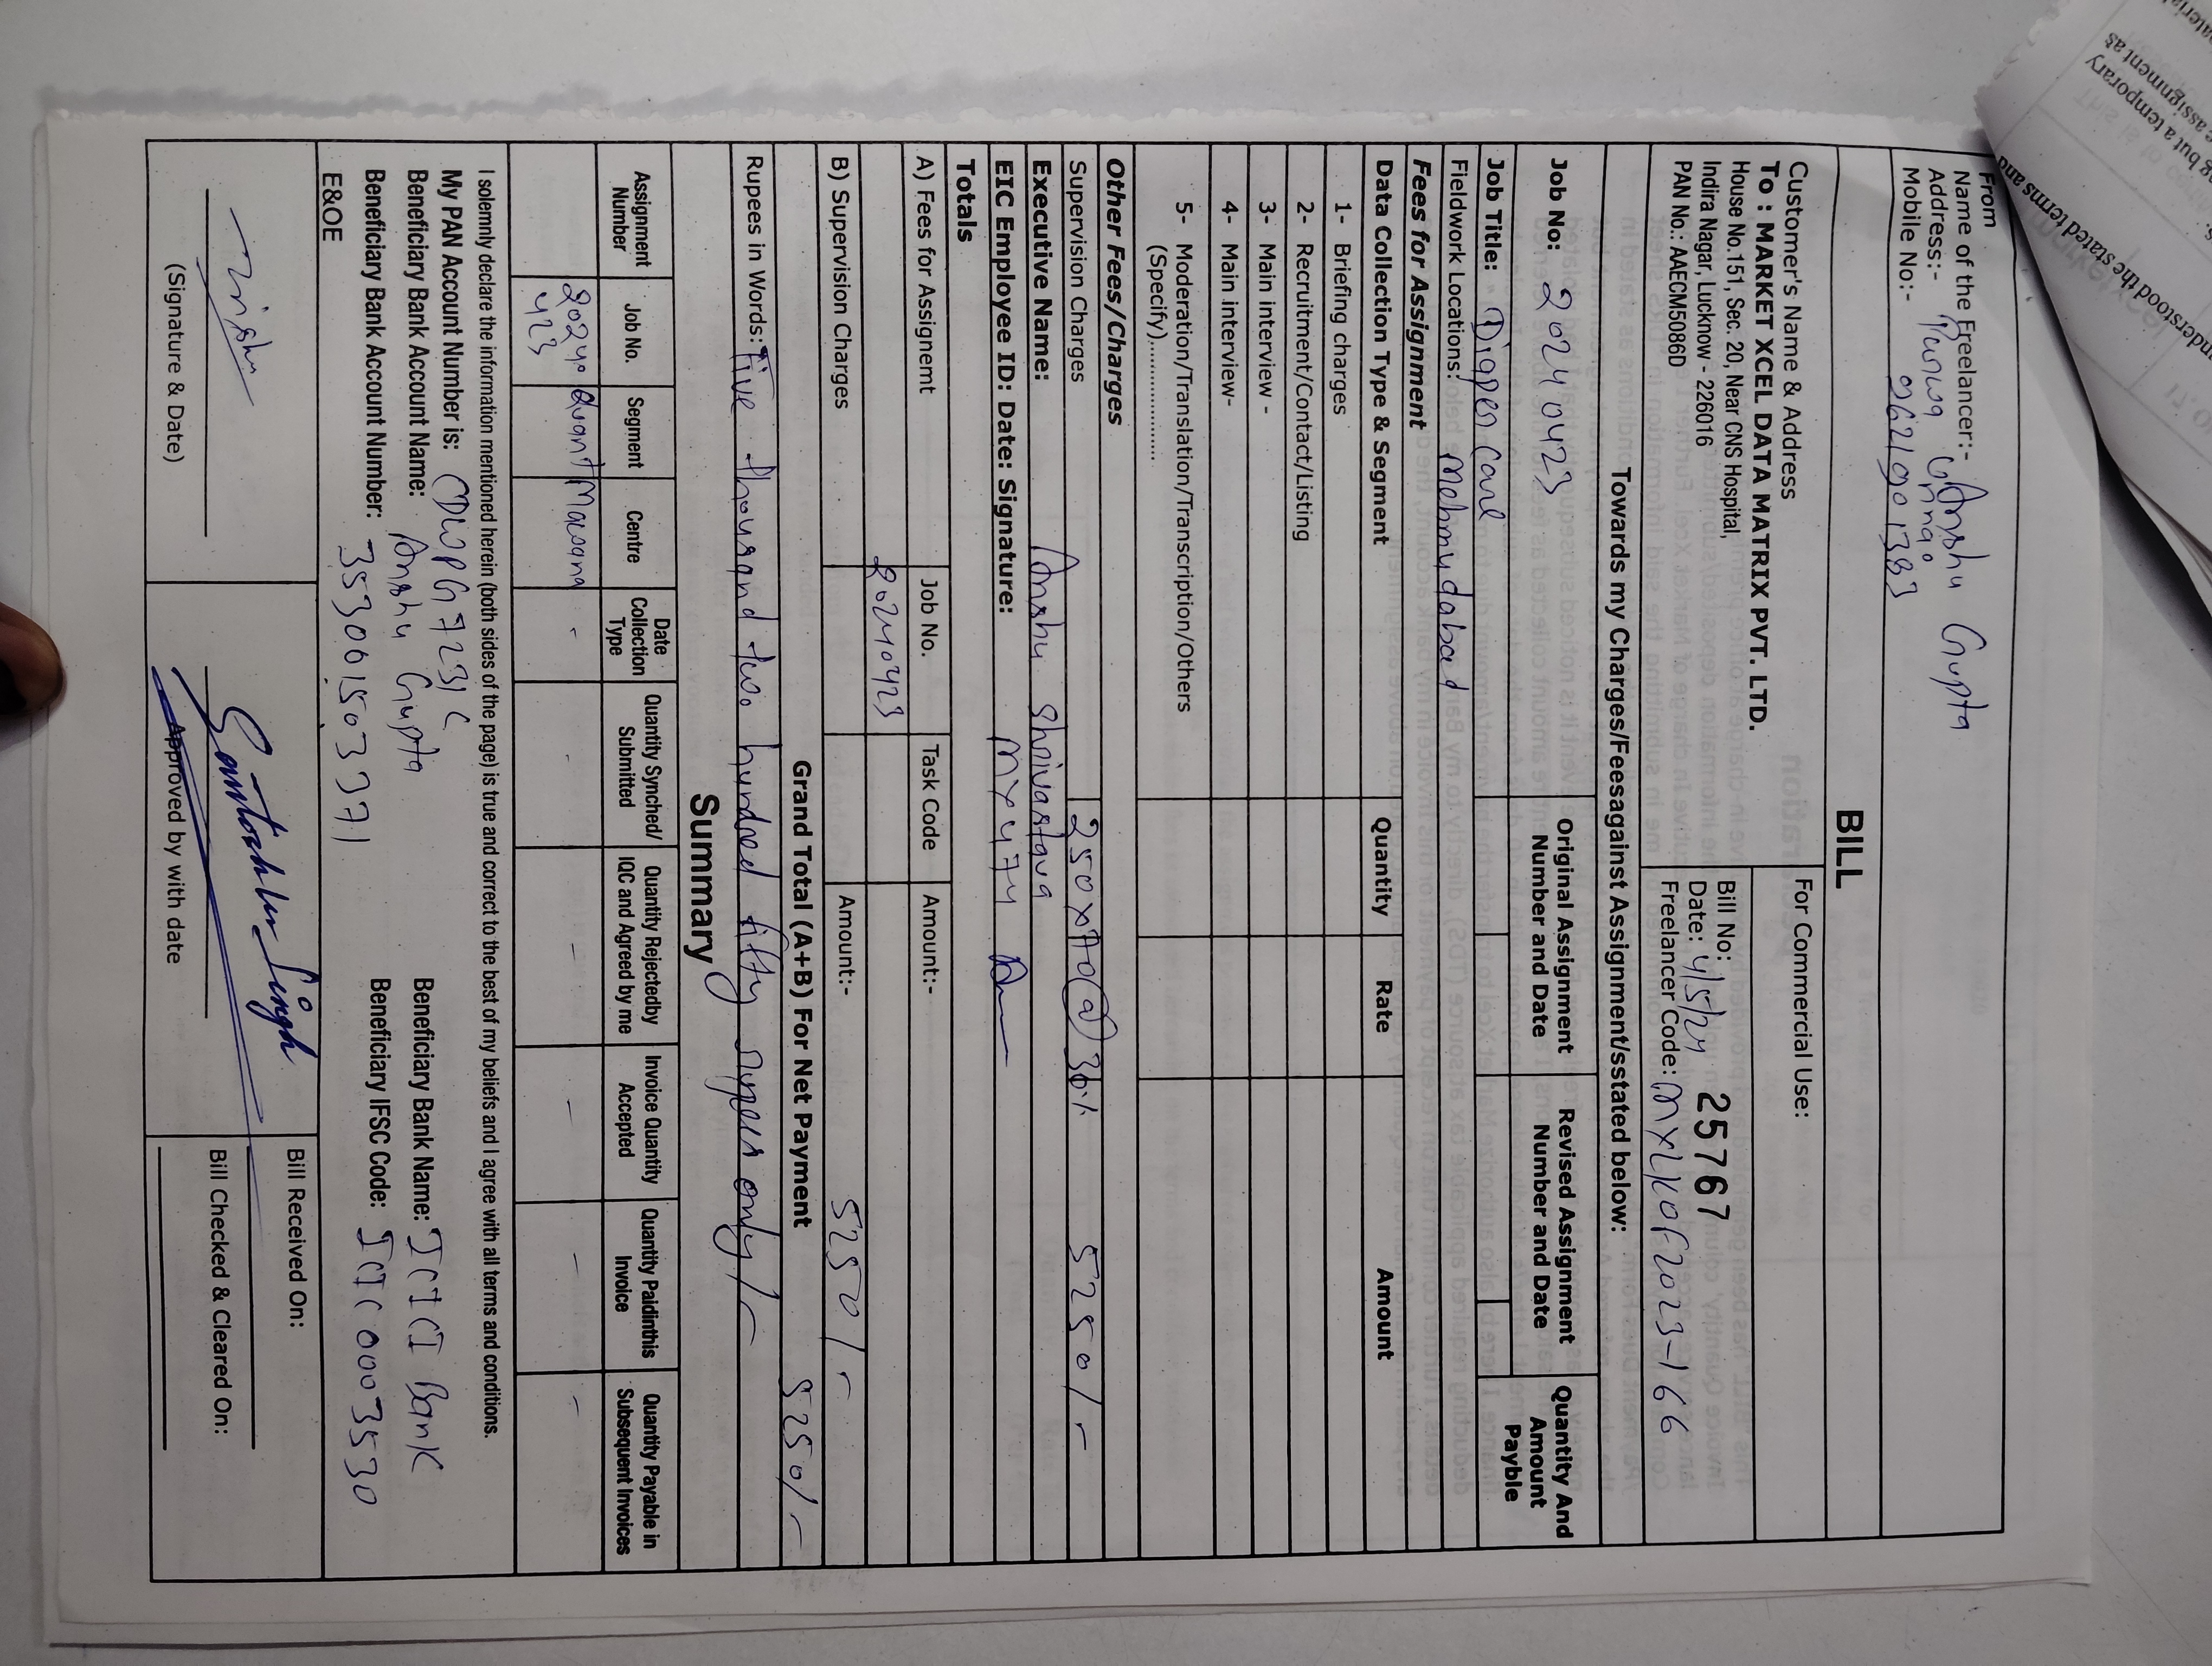 From
Name of the Freelancer:- Anshu Gupta
Address:-
Mobile No:- 9621901383
BILL
Customer's Name & Address
For Commercial Use:
To : MARKET XCEL DATA MATRIX PVT. LTD.
House No.151, Sec. 20, Near CNS Hospital,
Indira Nagar, Lucknow - 226016
PAN No.: AAECM5086D
Bill No: 25767
Date: 4/5/24
Freelancer Code: MXLKOF2023-166
Towards my Charges/Feesagainst Assignment/sstated below:
Job No: 20240423
Original Assignment Number and Date
Revised Assignment Number and Date
Quantity And Amount Payble
Job Title: Diaper Carl
Fieldwork Locations: Mehmudabad
Fees for Assignment
Data Collection Type & Segment Quantity Rate Amount
1- Briefing charges
2- Recruitment/Contact/Listing
3- Main interview -
4- Main interview-
5- Moderation/Translation/Transcription/Others
(Specify)..................
Other Fees/Charges
Supervision Charges 250x70@30% 5250/-
Executive Name: Anshu Shrivastava
EIC Employee ID: Date: Signature: MX474
Totals
A) Fees for Assignemt Job No. Task Code Amount:-
20240423
B) Supervision Charges Amount:- 5250/-
Grand Total (A+B) For Net Payment 5250/-
Rupees in Words: Five thousand two hundred fifty rupees only/-
Summary
Assignment Number Job No. Segment Centre Date Collection Type Quantity Synched/ Submitted Quantity Rejectedby IQC and Agreed by me Invoice Quantity Accepted Quantity Paidinthis Invoice Quantity Payable in Subsequent Invoices
20240 Quant - - - - - -
423
I solemnly declare the information mentioned herein (both sides of the page) is true and correct to the best of my beliefs and I agree with all terms and conditions.
My PAN Account Number is: CDWPG7231C
Beneficiary Bank Account Name: Anshu Gupta
Beneficiary Bank Name: ICICI Bank
Beneficiary Bank Account Number: 353001503371
Beneficiary IFSC Code: ICIC0003530
E&OE
Anshu
Santosh Kr Singh
Bill Received On:
Bill Checked & Cleared On:
(Signature & Date)
Approved by with date